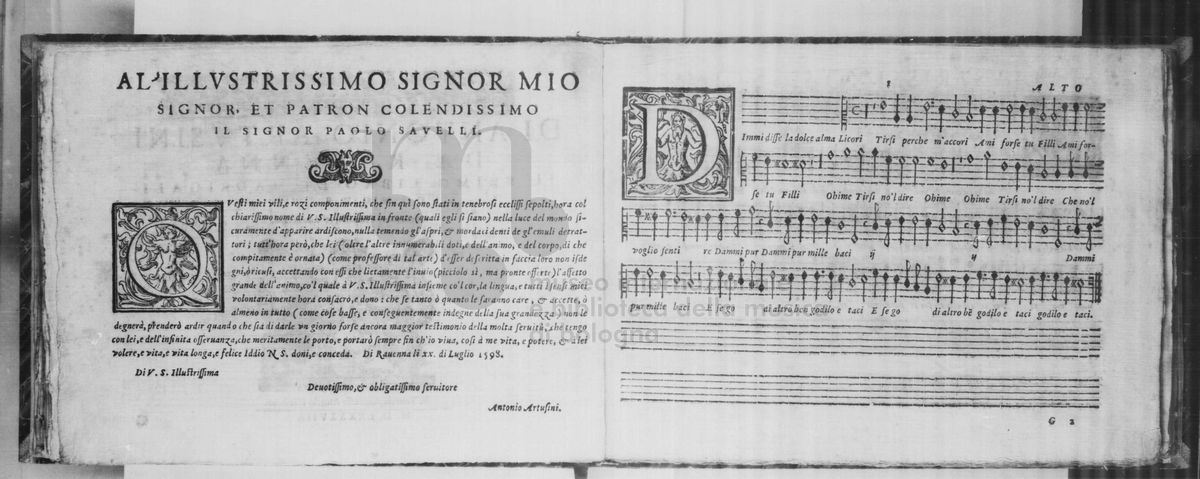 AL'ILLVSTRISSIMO SIGNOR MIO
SIGNOR, ET PATRON COLENDISSIMO
IL SIGNOR PAOLO SAVELLI.
QVesti miei vili, e rozi componimenti, che sin quì sono stati in tenebrosi ecclissi sepolti, hora col
chiarissimo nome di V. S. Illustrissima in fronte (quali egli si siano) nella luce del mondo si-
curamente d'apparire ardiscono, nulla temendo gl'aspri, & mordaci denti de gl'emuli detrat-
tori; tutt'hora però, che lei (oltre l'altre innumerabili doti, e dell'animo, e del corpo, di che
compitamente è ornata) (come professore di tal'arte) d'esser descritta in faccia loro non isde
gni, ò ricusi, accettando con essi che lietamente l'inuio (picciolo sì, ma pronte offerte) l'affetto
grande dell'animo, co'l quale à V. S. Illustrissima insieme co'l cor, la lingua, e tutti i sensi miei
volontariamente hora consacro, e dono: che se tanto ò quanto le saranno care, & accette, ò
almeno in tutto (come cose basse, e conseguentemente indegne della sua grandezza) non le
degnerà, prenderò ardir quando che sia di darle vn giorno forse ancora maggior testimonio della molta seruitù, che tengo
con lei, e dell'infinita osseruanza, che meritamente le porto, e portarò sempre fin ch'io viua, così à me vita, e potere, & à lei
volere, e vita, e vita longa, e felice Iddio N. S. doni, e conceda. Di Rauenna li xx. di Luglio 1598.
Di V. S. Illustrissima
Deuotissimo, & obligatissimo seruitore
Antonio Artusini.
1
ALTO
DImmi disse la dolce alma Licori Tirsi perche m'accori Ami forse tu Filli Ami for-
se tu Filli Ohime Tirsi no'l dire Ohime Ohime Tirsi no'l dire Che no'l
voglio senti re Dammi pur Dammi pur mille baci ij ij Dammi
pur mille baci E se go di altro ben godilo e taci E se go di altro bē godilo e taci godilo e taci.
G 2